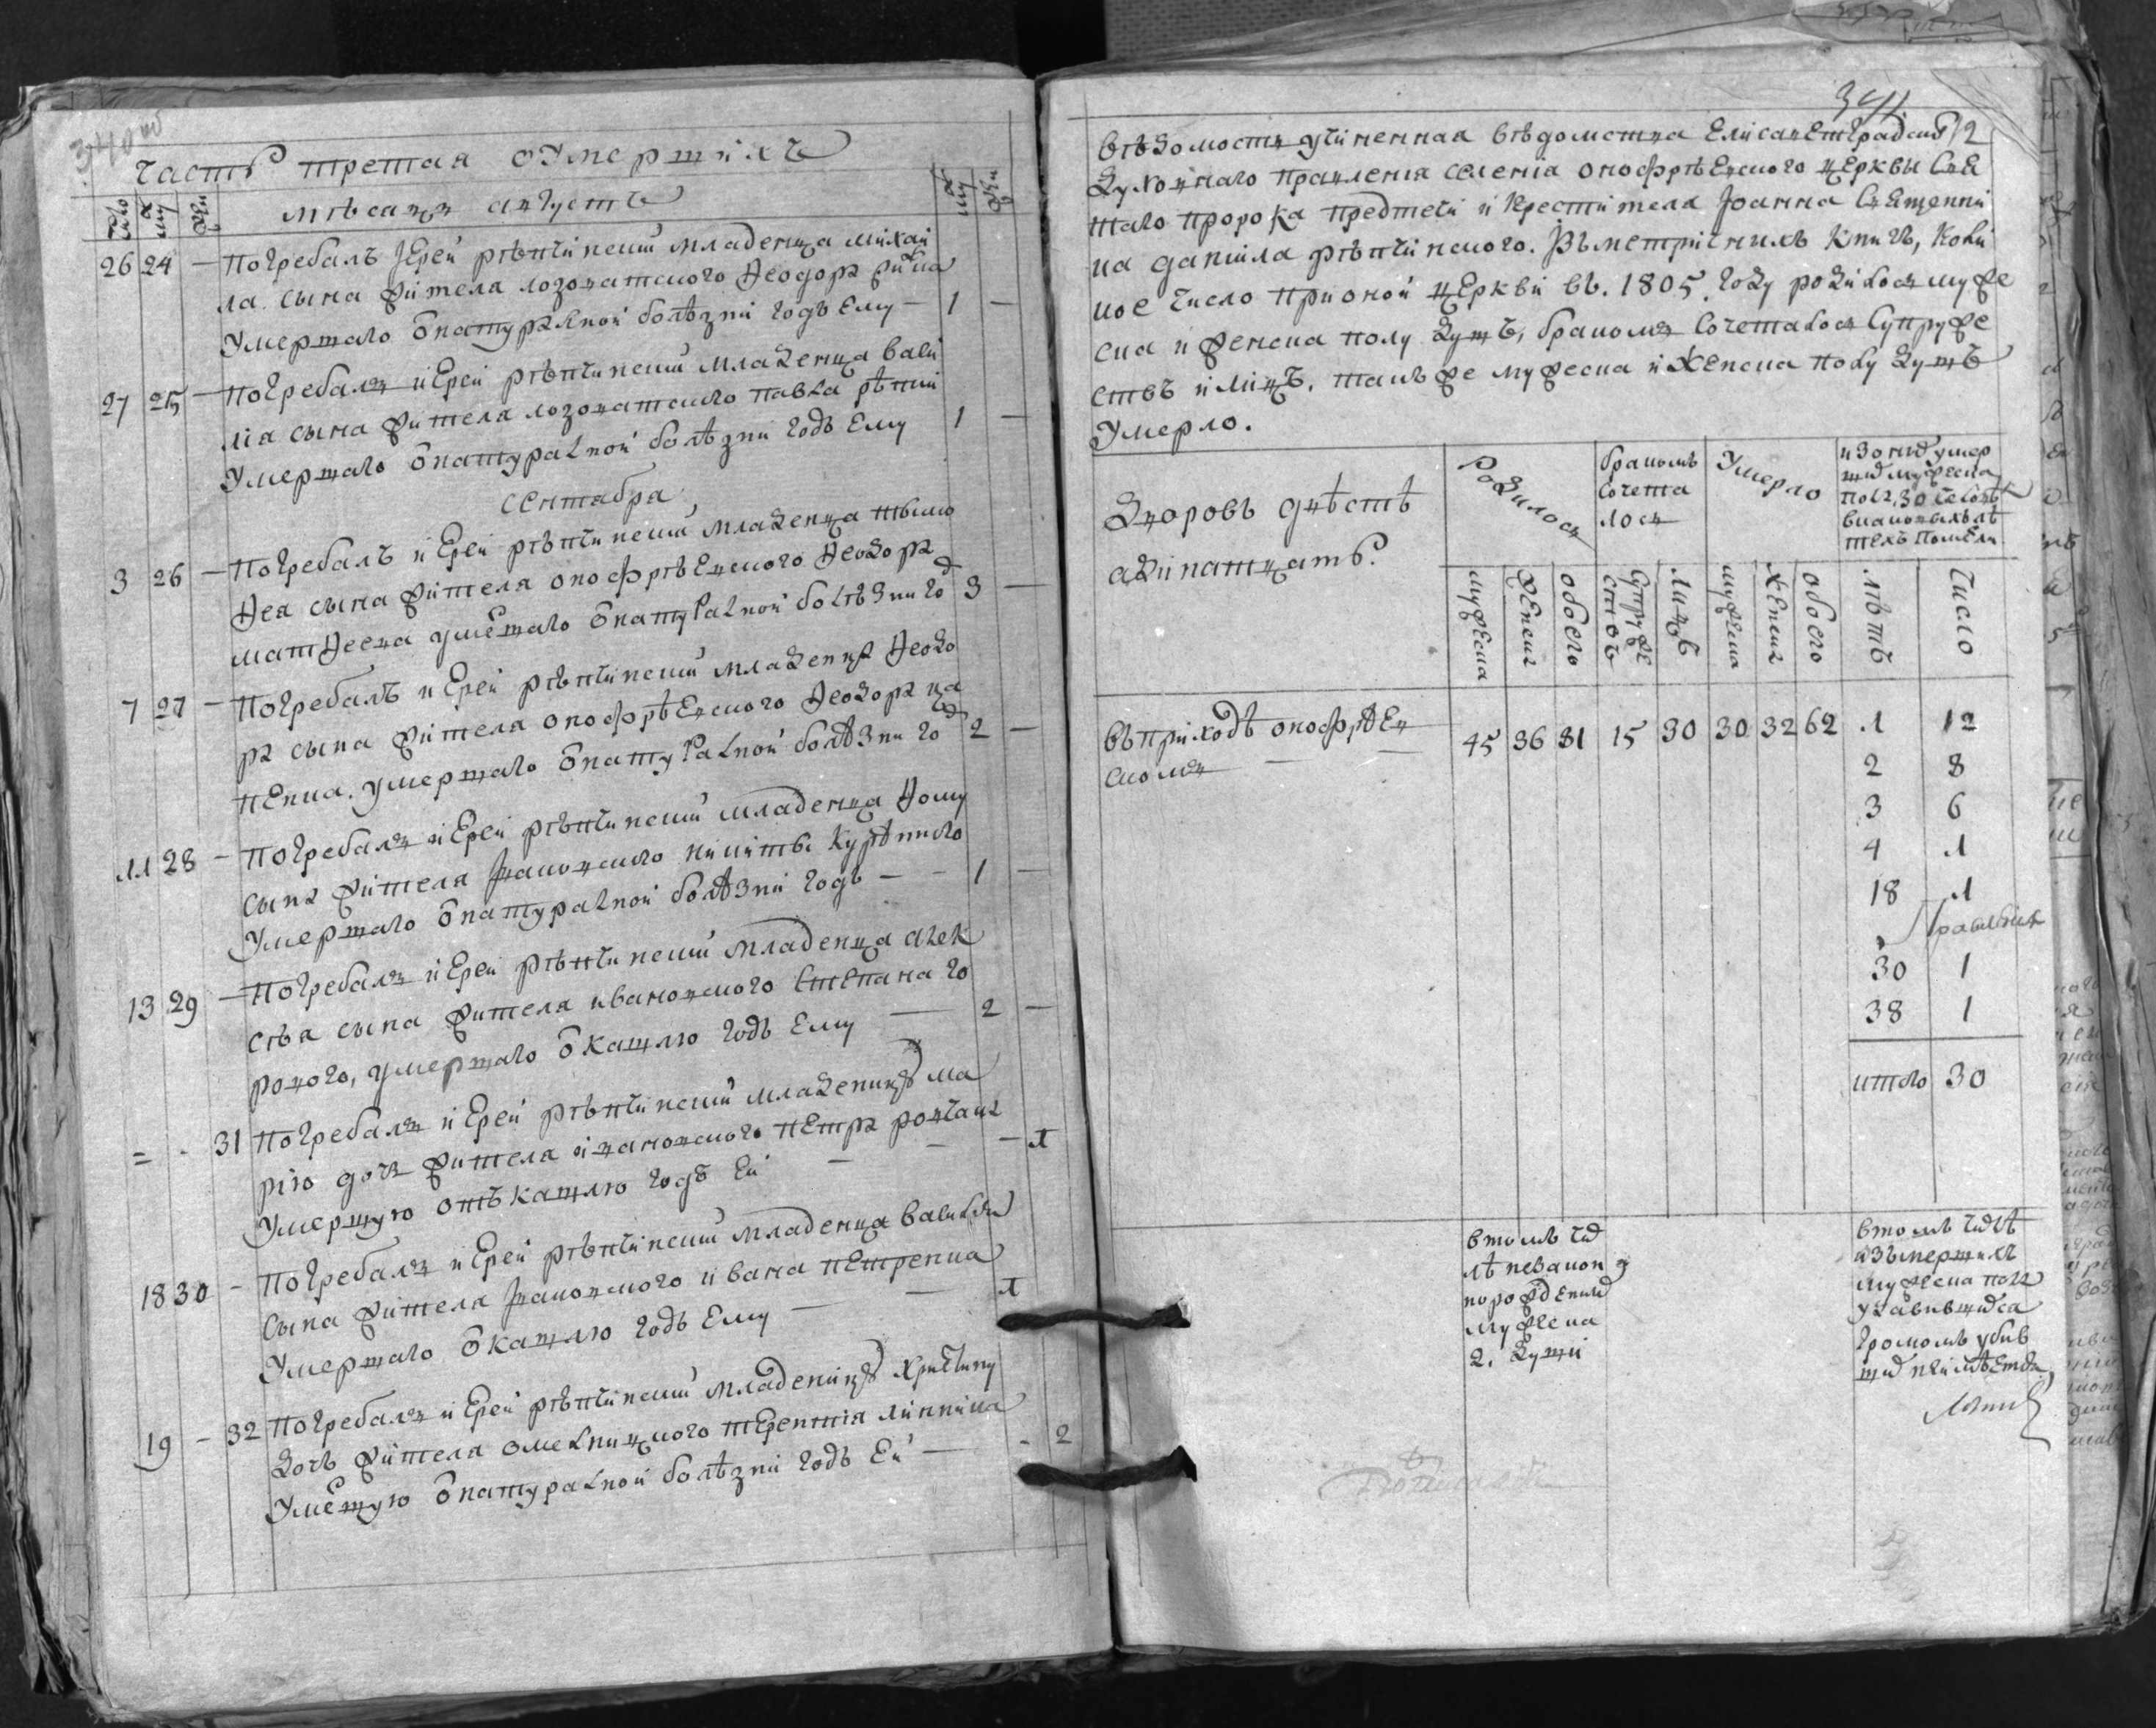 340 об
часть третая оумершихъ
число
м
ж
месаца августъ
м
ж
26 24 — погребалъ Iерей репчинский младенца михаи
ла сына жителя лозоватского Феодора
умершаго от натуралной болезни годъ Ему — 1 —
27 25 — погребалъ иЕрей репчинский младенца васи
лїа сына жителя лозоватского павла репни
умершаго от натуралной болезни годъ Ему 1 —
сентабра
3 26 — погребалъ иЕрей репчинский младенца тымо
Фея сына жителя онофрѣЕвского Феодора
матФеева умершаго от натуралной болезни год 3 —
7 27 — погребалъ иЕрей репчинский младенца Феодо
ра сына жителя онофрѣЕвского Феодора ца
пЕнка. умершаго от натуралной болезни год 2 —
11 28 — погребалъ иЕрей репчинский младенца Фому
сына жителя Ивановского никиты
умершаго от натуралной болезни годъ — — 1 —
13 29 — погребалъ иЕрей репчинский младенца алек
сѣя сына жителя ивановского стЕпана го
рового, умершаго от кашлю годъ Ему — 2 —
= - 31 погребалъ иЕрей репчинский младеницу ма
рїю дочь жителя ивановского пЕтра
умершую отъ кашлю годъ Ей — — — 1
18 30 — погребалъ иЕрей репчинский младенца василїя
сына жителя Ивановского ивана пЕтренка
умершаго от кашлю годъ Ему — — 1
19 — 32 погребалъ иЕрей репчинский младеницу христину
дочь жителя омелницкого тЕрентїя линника
умершую от натуралной болезни годъ Ей — - 2
341
вѣдомость учиненная вѣдомства Елисаветградскаго
духовнаго правленїя селенїя онофрѣЕвского церквы свя
таго пророка предтечи и крестителя Iоанна священни
ка данїила рѣпчинского. Въ метричнихъ книгъ, коли
кое число при оной церкви въ. 1805. году родилось муже
ска и женска полу душъ, бракомъ сочеталось супруже
ствъ и лицъ, такъ же мужеска и женска полу душъ
умерло.
дворовъ двѣстѣ
адинатцать.
Родилось
бракомъ
сочета
лось
Умерло
изонихъ умер
шихъ мужеска
полу 30 человѣкъ
в каковыхъ лѣ
техъ
мужеска
женска
обоего
супруже
ствъ
лицъ
мужеска
женска
обоего
лѣтъ
Число
въ приходѣ онофрѣЕв
скомъ — — 45 36 81 15 30 30 32 62 1 12
2 8
3 6
4 1
18 1
30 1
38 1
итого 30
втомъ чис
лѣ незакон
но рожденних
мужеска
2. души
втомъ числѣ
изъ мершихъ
мужеска полу
удавившихся
громомъ убив
ших